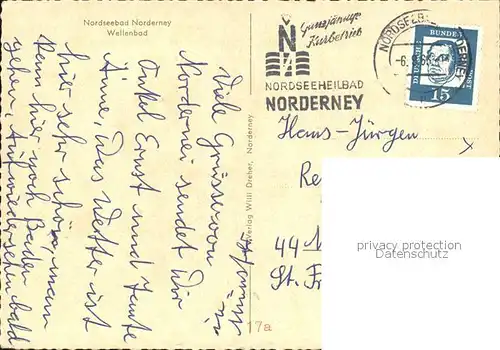 Nordseebad Norderney
Wellenbad
Viele Grüsse von
Norderney sendet Dir
Onkel Ernst und Tante
Änne, das Wetter ist
hier sehr schön, man
kann hier noch Baden
gehn, Auf wiedersehn bald
Verlag Willi Dreher, Norderney
17a
Ganzjährige
Kurbetrieb
N
NORDSEEHEILBAD
NORDERNEY
DEUTSCHE BUNDESPOST
15
Hans-Jürgen
Re
44 M
St. Fr
privacy protection
Datenschutz